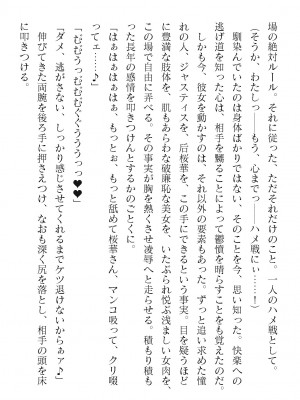 場の絶対ルール。それに従った、ただそれだけのこと。一人のハメ戦として。
（そうか、わたし――もう、心まで――ハメ戦にぃ――……！）
馴染んでいたのは身体ばかりではない、そのことを今、思い知った。快楽への
逃げ道を知った心は、相手を嬲ることによって鬱憤を晴らすことをも覚えたのだ。
しかも今、彼女を動かすのは、それ以外の要素もあった。ずっと追い求めた憧
れの人、ジャスティス、后桜華を、この手にできるという事実。目を疑うほど
に豊満な肢体を、肌もあらわな破廉恥な美女を、いたぶられ悦ぶ浅ましい女肉を、
この場で自由に弄べる。その事実が胸を熱くさせ凌辱へと走らせる。積もり積も
った長年の感情を叩きつけんとするかのごとくに。
「むむうっっぴむむんくくうううっっ♥♥」
「はぁはぁはぁはぁ、もっとぉ、もっと舐めて桜華さん、マンコ吸って、クリ啜
ってェ――♪」
「ダメ、逃がさない、しっかり感じさせてくれるまでケツ退けないからぁァ♪」
伸びてきた両腕を後ろ手に押さえつけ、なおも深く尻を落とし、相手の頭を床
に叩きつける。